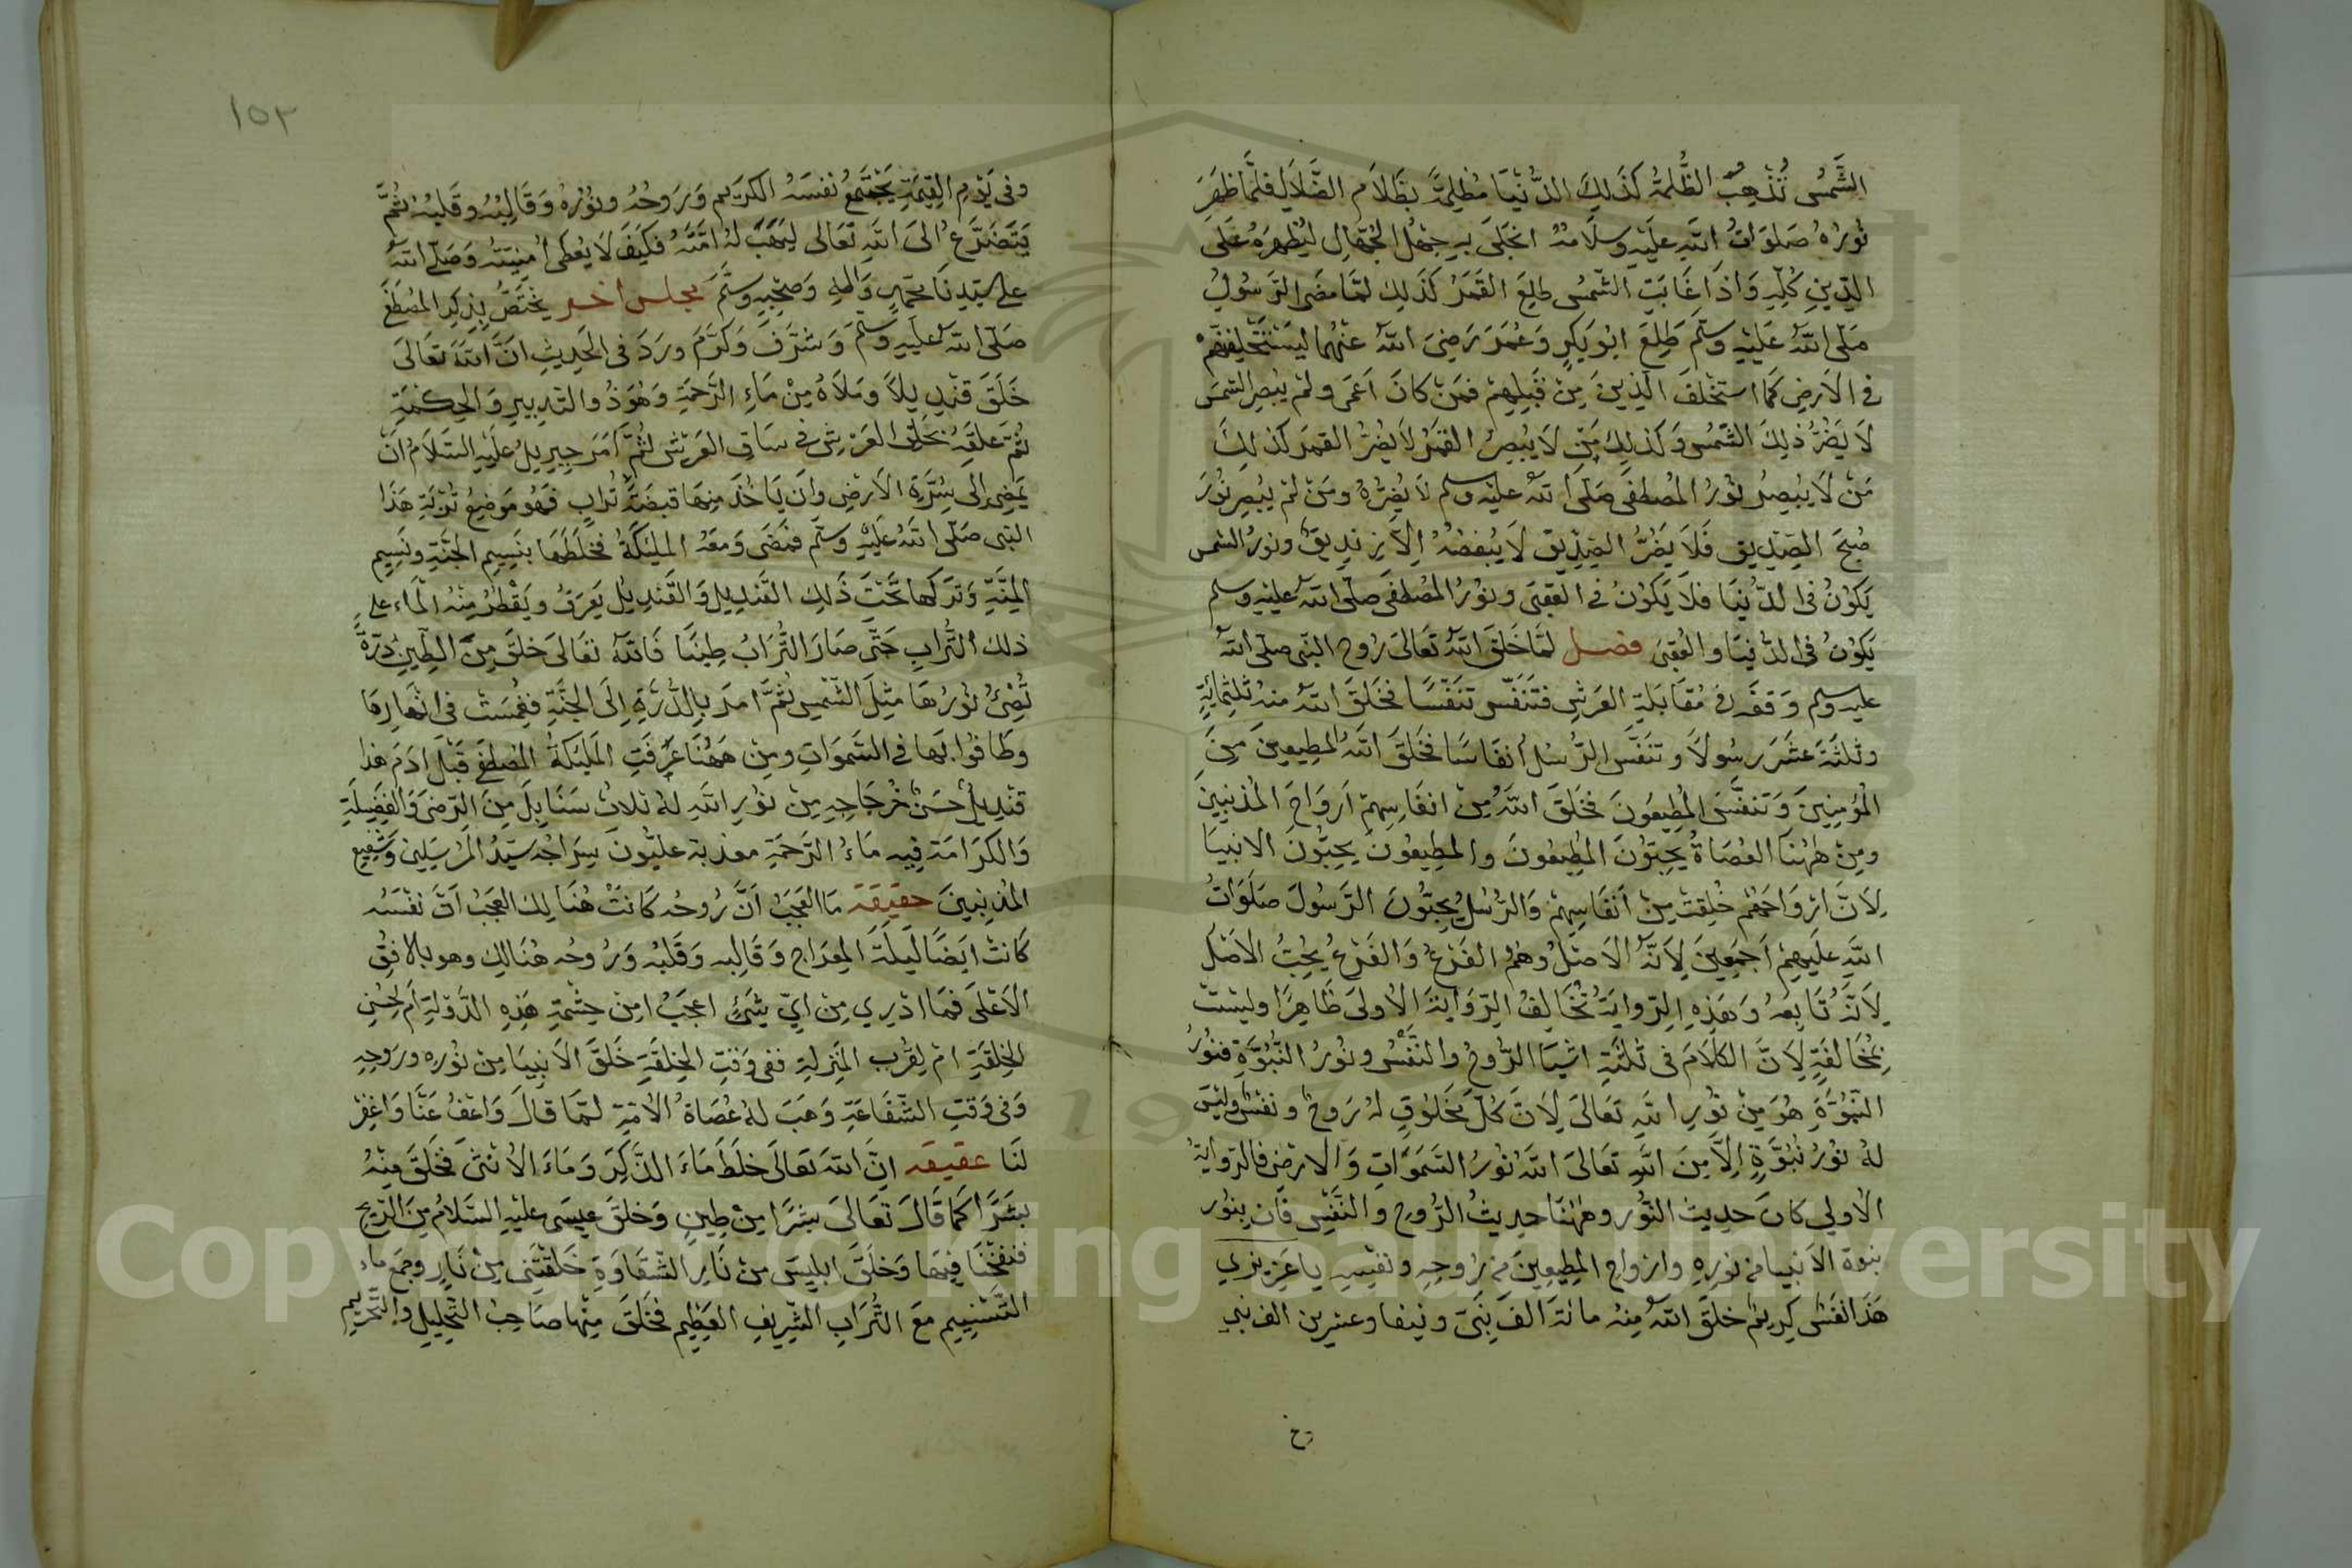 الشَّمْسُ تُذْهِبُ الظُّلمةَ كَذَلِكَ الدُّنْيَا مُظلِمَةً بِظَلَامِ الضَّلَالِ فلمَّا ظَهَرَ
نُورُهُ صَلَوَاتُ اللهِ عَلَيْهِ وسلَامُهُ انجَلَى بهِ جَهْلُ الجُهَّالِ لِيُظهِرَهُ عَلَى
الدِّينِ كُلِّهِ وَاذَا غَابَتِ الشَّمْسُ طلِعَ القَمَرُ كَذَلِكَ لمَّا مضَى الرَّسُولُ
صَلَّى اللهُ عَلَيْهِ وسلَّم طَلِعَ ابُو بَكرٍ وَعُمَرَ رَضِيَ اللهُ عَنْهُما لَيَسْتَخْلِفَنَّهُمْ
في الاَرضِ كَمَا اسْتَخْلَفَ الَّذِينَ مِنْ قَبْلِهِمْ فمَنْ كانَ اعْمَى ولمْ يُبْصِرِ الشمسَ
لَا يَضُرُّ ذلِكَ الشَّمْسَ وَكَذلِكَ مَنْ لَا يُبْصِرُ القَمَرَ لَا يَضُرُّ القمرَ كَذلِكَ
مَنْ لَا يُبْصِرُ نُوْرَ المُصطفَى صَلَّى اللهُ عليْهِ وسلم لَا يَضُرُّهُ ومَنْ لمْ يُبْصِرْ نُورَ
صُبْحِ الصِّدِّيقِ فَلَا يَضُرُّ الصِّدِّيقَ لَا يُبْغِضُهُ اِلَّا زِنْدِيقٌ ونورُ الشمس
يَكُوْنُ في الدُّنْيَا فلَا يَكُوْنُ في العُقبَى ونوْرُ المُصْطفَى صلّى اللهُ عليْهِ وسلم
يَكُوْنُ في الدّنيَا والعُقبَى فصل لمَّا خَلَقَ اللهُ تَعَالَى رُوحَ النَّبي صلّى اللهُ
عليه وسلم وَقفَ في مُقَابَلَةِ العَرْشِ فتَنَفَّسَ تنَفُّسًا فخَلَقَ اللهُ منهُ ثلثمائةٍ
وثلثَةَ عَشَرَ رسُولًا وتنَفَّسَ الرُّسُلُ أنفَاسًا فخَلَقَ اللهُ المطِيعِينَ مِنَ
المُؤمِنِينَ وَتنفَّسَ المُطِيعُونَ فخَلَقَ اللهُ مِنْ انفَاسِهِمْ اَروَاحَ المُذنِبينَ
ومِنْ هٰهُنَا العُصَاةُ يُحِبُّوْنَ المُطِيعُونَ والمطِيعُوْنَ يُحِبُّونَ الانبيَا
لِاَنَّ ارْوَاحَهُم خُلِقَتْ مِنْ أنْفَاسِهِمْ وَالرُّسُلُ يُحِبُّونَ الرَّسُولَ صَلَوَاتُ
اللهِ عَلَيْهِمْ أَجمَعِينَ لِاَنَّهُ الاَصْلُ وَهُمُ الفَرْعُ وَالفَرْعُ يُحِبُّ الاَصْلَ
لِاَنَّهُ تَابِعُهُ وَهَذِهِ الرِّوايَةُ تُخَالِفُ الرِّوَايَةَ الأولَى ظَاهِرًا وليْسَتْ
بِمُخَالفَةٍ لِاَنَّ الكَلَامَ فى ثلثَةِ اشيَا الرُّوحُ والنَّفْسُ ونُورُ النُّبُوَّةِ فنُورُ
النُّبُوَّةِ هُوَ مِنْ نُورِ اللهِ تَعَالَى لِاَنَّ كُلَّ مَخلوقٍ لهُ رَوحٌ ونفسٌ وليْسَ
لهُ نوْرُ نُبُوَّةٍ اِلَّا مِنَ اللهِ تعَالَى اللهُ نُورُ السَّمَوَاتِ وَالارْضِ فالرِّوايَةُ
الأولى كانَ حديثَ النُّورِ وهٰهُنَا حديثُ الرُّوحِ والنَّفْسِ فَاِن بنُور
نبوة الاَنبيا من نورِهِ وارْواحِ المطِيعِينَ مِن رُوحِهِ ونفسِهِ يا عَزِيزِي
هَذَا نفَسٌ كرِيمٌ خلَقَ اللهُ مِنْهُ مائةَ الفَ نَبِيّ ونيفا وعشرين الف نبي
١٥٣
وفى يَوْمِ القِيمَةِ يَجْتَمِعُ نفسَهُ الكَرِيم وَرَوحُهُ ونُوْرُهُ وَقَالِبُهُ وقَلبُهُ ثمَّ
يَتَضَرَّعُ الَى اللهِ تَعَالى لِيَهَبَ لهُ امَّتَهُ فكَيْفَ لَا يُعْطَى أُمْنِيَتَهُ وَصَلّى اللهُ
على سيِّدِنَا محمَّدٍ وَآلِهِ وَصَحْبِهِ وسَلَّمَ مجلس اخر يختَصُّ بِذِكرِ المُصْطَفَى
صَلّى اللهُ عَلَيْهِ وسلَّمَ وَشَرَّفَ وَكَرَّمَ ورَدَ فى الحَدِيثِ انَّ اللهَ تَعَالَى
خَلَقَ قنْدِيلًا وملَأَهُ مِنْ مَاءِ الرَّحمَةِ وَهُوَ ذُو التدبيرِ وَالحِكْمَةِ
ثُمَّ عَلقَهُ بخلق العَرْشِ في سَاقِ العَرْشِ ثُمَّ أَمَرَ جبرِيلَ عَليْهِ السَّلَامُ انْ
يَمْضِىَ الَى سُرَّةِ الاَرْضِ وانْ يَاخُذَ مِنهَا قبضَةَ تُرابٍ فهُو مَوضِعُ تُرْبَةِ هَذَا
النَّبى صَلّى اللهُ عَلَيْهِ وسلَّم فمَضَى وَمعَهُ المليكَةُ فخلَطَهَا بنَسِيمِ الجَنَّةِ ونسِيمِ
المِنَّةِ وَترَكَها تَحْتَ ذَلِكَ القنْدِيلِ وَالقَنْدِيلُ يَعْرَقُ ويَقْطُرُ مِنْهُ المَاءُ على
ذلك التُّرَابِ حَتَّى صَارَ التُّرَابُ طِينًا فَاللهُ تعَالَى خلَقَ مِنَ الطِّينِ دُرَّةً
تُضِئُ نُورُهَا مِثلَ الشَّمْسِ ثمَّ امرَ بالدُّرَّةِ اِلَى الجَنَّةِ فغُمِسَتْ فى انهَارِهَا
وطَافُوا بهَا في السَّمَوَاتِ ومِنْ هَهُنَا عَرَفَتِ المَليكَةُ المُصْطَفَى قَبْلَ ادَمَ هذا
قنْدِيلٌ حَسَنٌ خرجَاجِهِ مِنْ نوْرِ اللهِ لهُ ثلاثُ سَنَابِلَ مِنَ الرِّضَى وَالفَضِيلَةِ
وَالكَرَامَة فِيهِ مَاءُ الرَّحمَةِ معذبة عليُّونَ سِرَاجُهُ سَيِّدُ المُرْسَلِينَ وَشَفِيعُ
المُذنبينَ حقيقة مَا العَجَبُ اَنَّ رُوحَهُ كَانَتْ هُنَالِكَ العَجَبُ انَّ نفْسَهُ
كَانَتْ ايضًا لَيْلَةَ المِعْرَاجِ وَقَالِبه وَقَلبُه وَرُوحُه هُنَالِكَ وهو بالافُقِ
الاَعْلَى فمَا ادْرِي مِنْ ايِّ شئٍ اعجَبُ امِنْ حِشْمَةِ هَذِهِ الدَّوْلَةِ أَم لِحُسْنِ
الخِلقَةِ امْ لِقُرْبِ المَنْزِلَةِ ففى وَقتِ الخِلقَةِ خَلَقَ الاَنبيَا مِنْ نُورِهِ ورَوحِهِ
وَفى وَقتِ الشَّفَاعَةِ وَهَبَ لهُ عُصَاةُ الأمَّةِ لمَّا قالَ وَاعْفُ عَنَّا وَاغْفِرْ
لَنَا عقيقة اِنَّ اللهَ تعَالَى خلَطَ مَاءَ الذَّكَرِ وَمَاءَ الأنثَى فخَلَقَ مِنْهُ
بَشَرًا كَمَا قَالَ تَعَالَى بشَرًا مِنْ طِينٍ وَخلَقَ عِيسَى عليْهِ السَّلَامُ مِنَ الرِّيحِ
فنفَخْنَا فِيهَا وَخلَقَ ابليسَ مِنْ نَارِ الشَّقَاوَةِ خَلَقْتَنِى مِنْ نَارٍ وجَمَعَ ماء
التَّسْنِيمِ مَعَ التُّرَابِ الشَّرِيفِ العَظِيمِ فخَلَقَ مِنْها صَاحِبَ التَّحْلِيلِ والتَّحْرِيمِ
Copyright © King Saud University